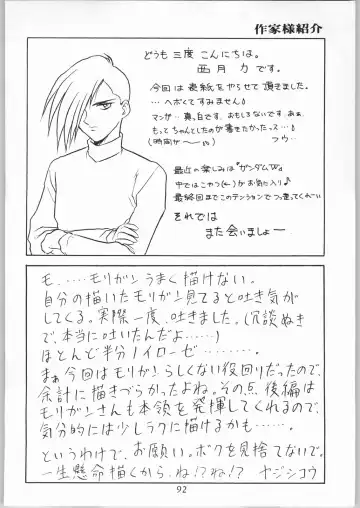 作家様紹介
どうも三度こんにちは。
西月力です。
今回は表紙をやらせて頂きました。
…ヘボくてすみません♪
マンガ…真っ白です、おもしろないです。あぁ
もってちゃんとしたのが書きたかったっス…♪
(時間が〜) つう…
最近の楽しみは『ガンダムW』
中でもこやつ(←)がお気に入り♪
最終回までこのテンションでつっ走ってくれーい
それでは
また会いましょー
モ、……モリガンうまく描けない。
自分の描いたモリガン見てると吐き気が
してくる。実際一度、吐きました。(冗談ぬき
で、本当に吐いたんだよ……)
ほとんど半分ノイローゼ………。
まぁ今回はモリガンらしくない役回りだったので、
余計に描きづらかったよね。その点、後編は
モリガンさんも本領を発揮してくれるので、
気分的には少しラクに描けるかも……。
というわけで、お願い。ボクを見捨てないで。
一生懸命描くから、ね!?ね!? ナジシコウ
92